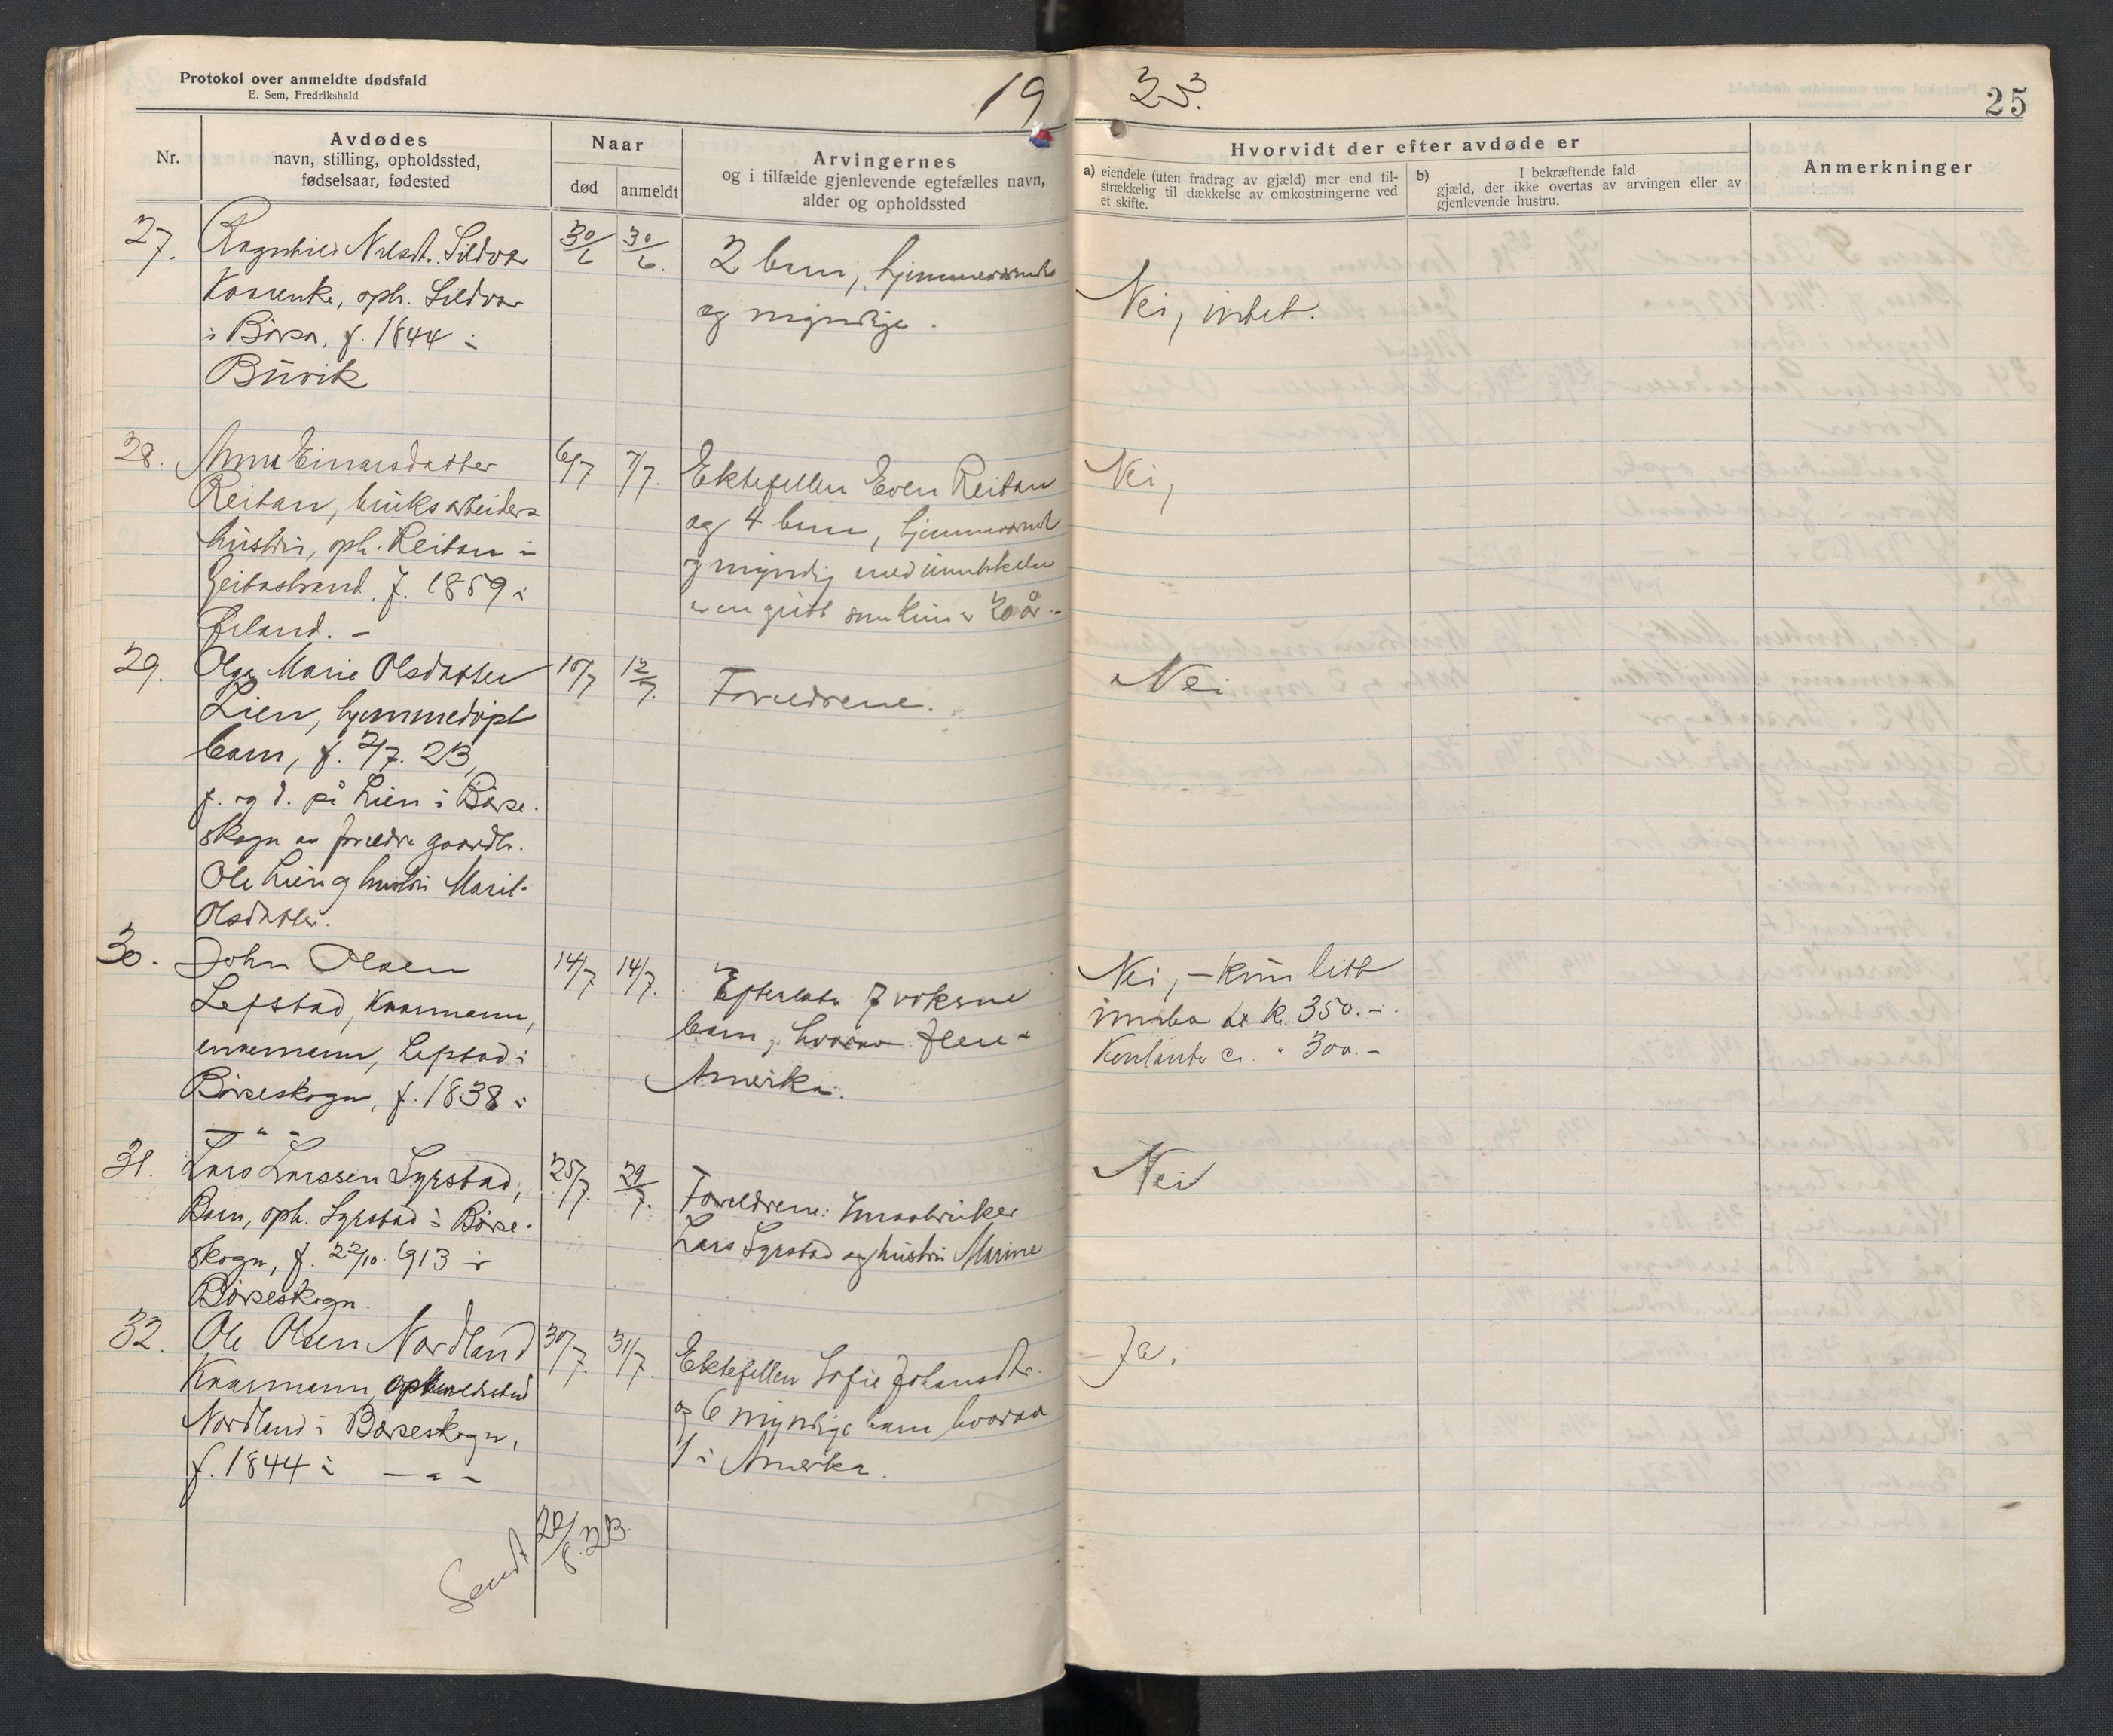 Protokol over anmeldte dødsfald
E. Sem, Fredrikshald
19 23.
25
Nr.
Avdødes
navn, stilling, opholdssted,
fødselsaar, fødested
Naar
død
anmeldt
Arvingernes
og i tilfælde gjenlevende egtefælles navn,
alder og opholdssted
Hvorvidt der efter avdøde er
a) eiendele (uten fradrag av gjæld) mer end til-
strækkelig til dækkelse av omkostningerne ved
et skifte.
b) I bekræftende fald
gjæld, der ikke overtas av arvingen eller av
gjenlevende hustru.
Anmerkninger
27.
Ragnhild Nilsdt. Sildvar
Kaarenke, oph. Sildvar
i Børsa, f. 1844 i
Buvik
30/6
30/6.
2 barn, hjemmeværende
og myndige.
Nei, intet.
28.
Anna Einarsdatter
Reitan, bruksarbeider-
hustru, oph. Reitan i
Geitastrand. f. 1859 i
Ørland. –
6/7
7/7.
Ektefellen Even Reitan
og 4 barn, hjemmeværend
og myndig med unntakelse
av en gutt som kun er 20 år.–
Nei,
29.
Olga Marie Olsdatter
Lien, hjemmedøpt
barn, f. 2/7. 23,
f. og d. på Lien i Børse-
skogn av foreldre gaardbr.
Ole Lien og hustru Marit
Olsdatter.
10/7
12/7.
Foreldrene.
Nei
30.
John Olsen
Lefstad, Kaarmann,
enkemann, Lefstad i
Børseskogn, f. 1838 i
— " –
14/7
14/7.
Efterlater 7 voksne
barn, hvorav flere i
Amerika.
Nei, – kun litt
innbo kr. 350. –
Kontanter ca. " 300. –
31.
Lars Larssen Syrstad,
Barn, oph. Syrstad i Børse-
skogn, f. 22/10. 1913 i
Børseskogn.
25/7.
29/7.
Foreldrene: Smaabruker
Lars Syrstad og hustru Marine
Nei
32.
Ole Olsen Nordland
Kaarmann, opholdssted
Nordland i Børseskogn,
f. 1844 i — " –
30/7.
31/7.
Ektefellen Sofie Johansdtr.
og 6 myndige barn hvorav
1 i Amerika.
Ja.
Sendt 20/8. 23.